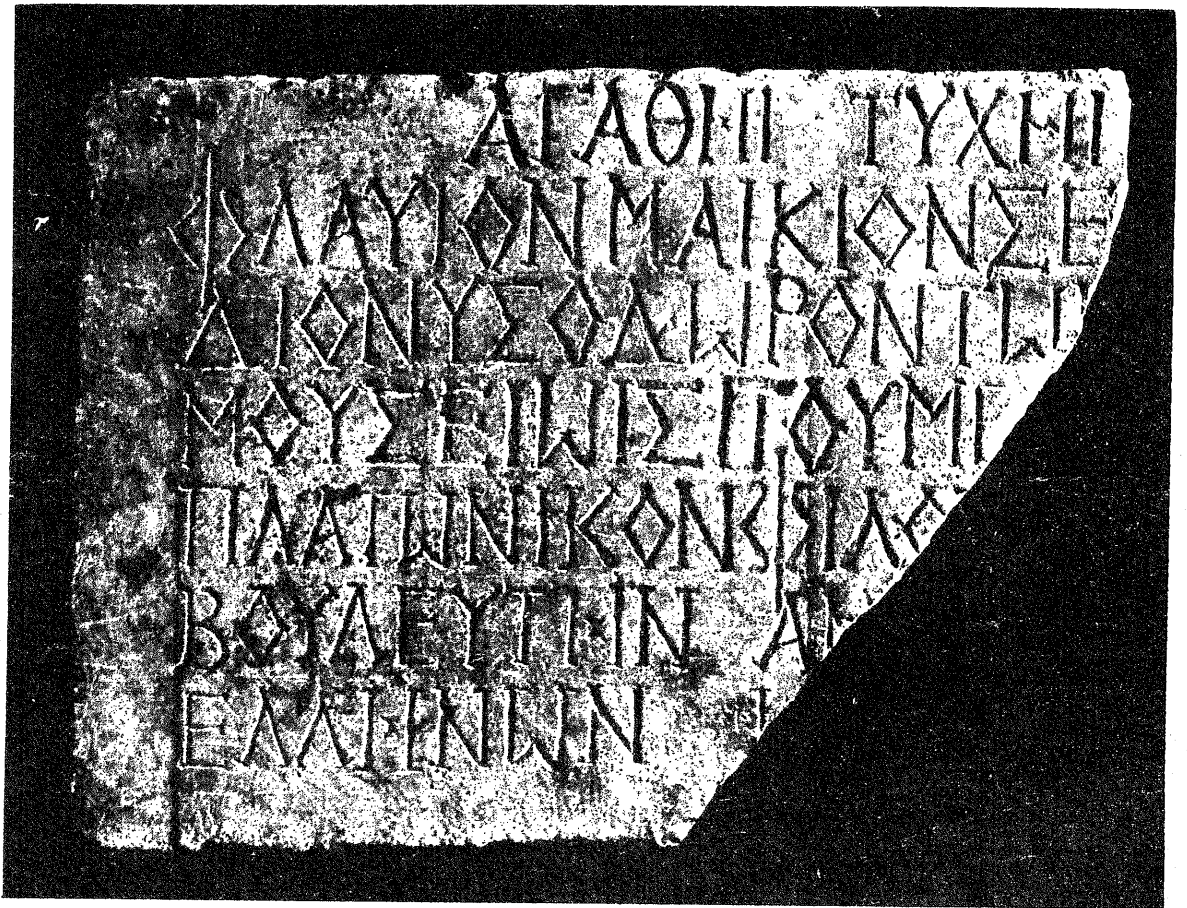 ΑΓΑΘΗΙ ΤΥΧΗΙ
ΦΛΑΥΙΟΝΜΑΙΚΙΟΝΣΕ
ΔΙΟΝΥΣΟΔΩΡΟΝΤΩΝ
ΜΟΥΣΕΙΩΙΣΙΤΟΥΜΕ
ΠΛΑΤΩΝΙΚΟΝ
ΒΟΥΛΕΥΤΗΝ ΑΝ
ΕΛΛΗΝΩΝ